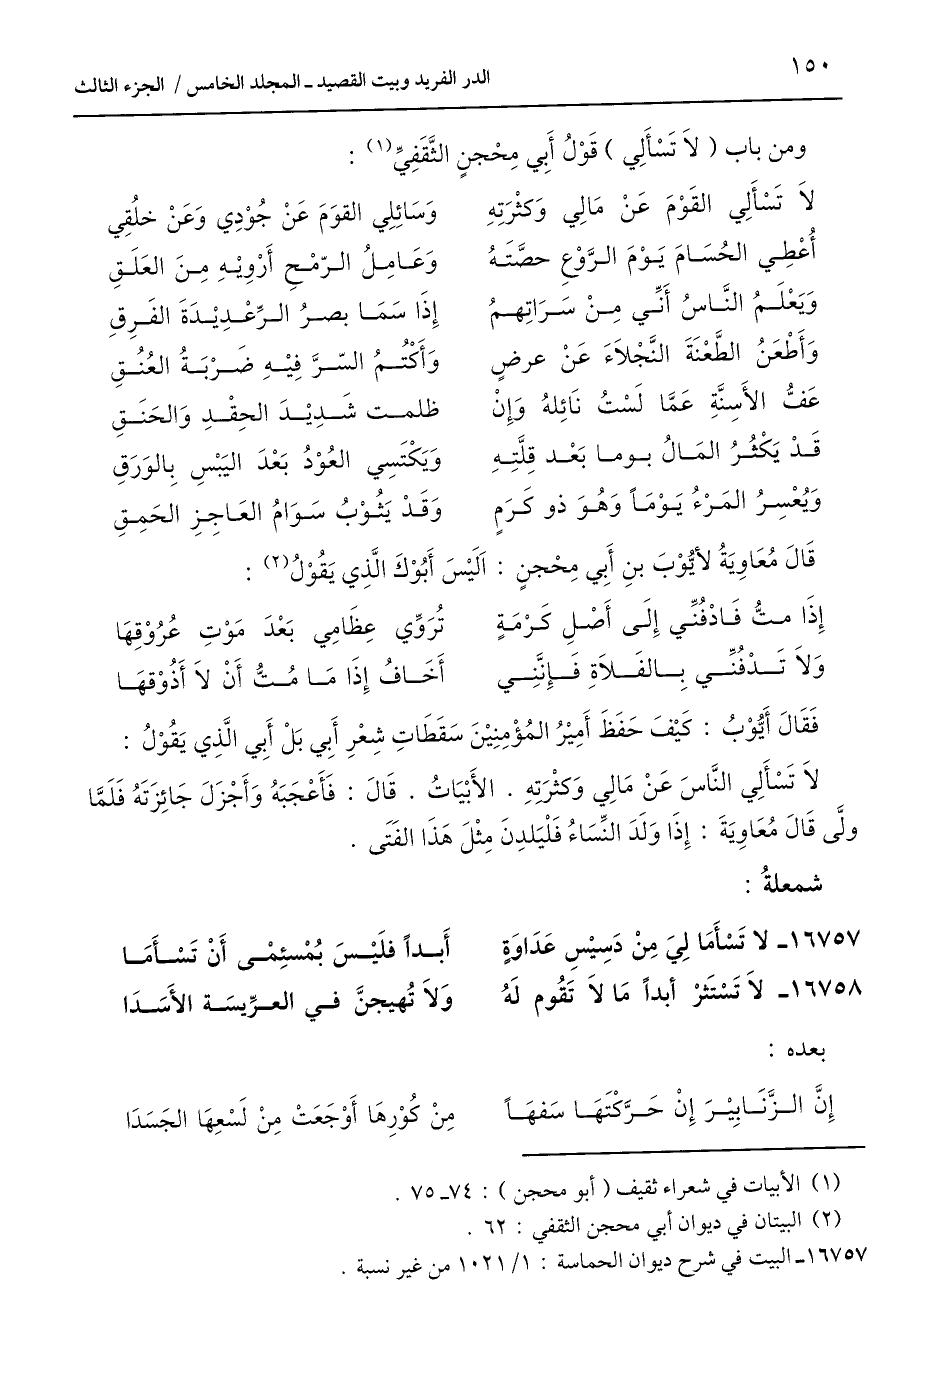 ١٥٠
الدر الفريد وبيت القصيد ـ المجلد الخامس / الجزء الثالث
ومن باب ( لاَ تَسْأَلِي ) قَوْلُ أَبِي مِحْجنٍ الثَّقَفِيِّ(١) :
لاَ تَسْأَلِي القَوْمَ عَنْ مَالِي وَكثْرَتِهِ وَسَائِلِي القوَمَ عَنْ جُوْدِي وَعَنْ خلُقِي
أُعْطِي الحُسَامَ يَوْمَ الرَّوْعِ حصَّتَهُ وَعَامِلُ الرّمْحِ أرْوِيْهِ مِنَ العَلَقِ
وَيَعْلَمُ النَّاسُ أَنِّي مِنْ سَرَاتِهِمُ إِذَا سَمَا بصرُ الرِّعْدِيْدَةَ الفَرِقِ
وَأَطْعَنُ الطَّعْنَةَ النَّجْلاَءَ عَنْ عرضٍ وَأَكْتُمُ السّرَّ فِيْهِ ضَرْبَةُ العُنُقِ
عَفُّ الأسِنَّةِ عَمَّا لَسْتُ نَائِلهُ وَإِنْ ظلمت شَدِيْدَ الحِقْدِ وَالحَنَقِ
قَدْ يَكْثُرُ المَالُ يوما بَعْد قِلَّتِهِ وَيَكْتَسِي العُوْدُ بَعْدَ اليَبْسِ بِالوَرَقِ
وَيُعْسِرُ المَرْءُ يَوْمَاً وَهُوَ ذو كَرَمٍ وَقَدْ يَثُوْبُ سَوَامُ العَاجِزِ الحَمِقِ
قَالَ مُعَاوِيَةُ لأيُّوْبَ بنِ أبِي مِحْجنٍ : اَلَيْسَ أَبُوْكَ الَّذِي يَقُوْلُ(٢) :
إِذَا متُّ فَادْفُنِّي إِلَى أَصْلِ كَرْمَةٍ تُرَوِّي عِظَامِي بَعْدَ مَوْتِ عُرُوْقِهَا
وَلاَ تَدْفُنِّي بِالفَلاَةِ فَإِنَّنِي أَخَافُ إِذَا مَا مُتُّ أَنْ لاَ أذُوْقهَا
فَقَالَ أَيُّوْبُ : كَيْفَ حَفَظَ أَمِيْرُ المُؤْمِنِيْنَ سَقَطَاتِ شِعْرِ أَبِي بَلْ أَبِي الَّذِي يَقُوْلُ :
لاَ تَسْأَلِي النَّاسَ عَنْ مَالِي وَكثْرَتِهِ . الأَبْيَاتُ . قَالَ : فَأَعْجَبَهُ وَأَجْزَلَ جَائِزَتَهُ فَلَمَّا
ولَّى قَالَ مُعَاوِيَةَ : إِذَا وَلَدَ النِّسَاءُ فَلْيَلدِنَ مِثْلَ هَذَا الفَتَى .
شمعلةُ :
١٦٧٥٧ـ لا تَسْأَمَا لِيَ مِنْ دَسِيْسِ عَدَاوَةٍ أَبداً فَلَيْسَ بُمْسئِمْى أَنْ تَسْأَمَا
١٦٧٥٨ـ لاَ تَسْتَثرْ أبداً مَا لاَ تَقُوم لَهُ وَلاَ تُهيجنَّ في العرّيسَة الأَسَدَا
بعده :
إِنَّ الزَّنَابِيْرَ إِنْ حَرَّكْتَهَا سَفهَاً مِنْ كُوْرِهَا أَوْجَعَتْ مِنْ لَسْعِهَا الجَسَدَا
(١) الأبيات في شعراء ثقيف ( أبو محجن ) : ٧٤ـ ٧٥ .
(٢) البيتان في ديوان أبي محجن الثقفي : ٦٢ .
١٦٧٥٧ـ البيت في شرح ديوان الحماسة : ١/ ١٠٢١ من غير نسبة .